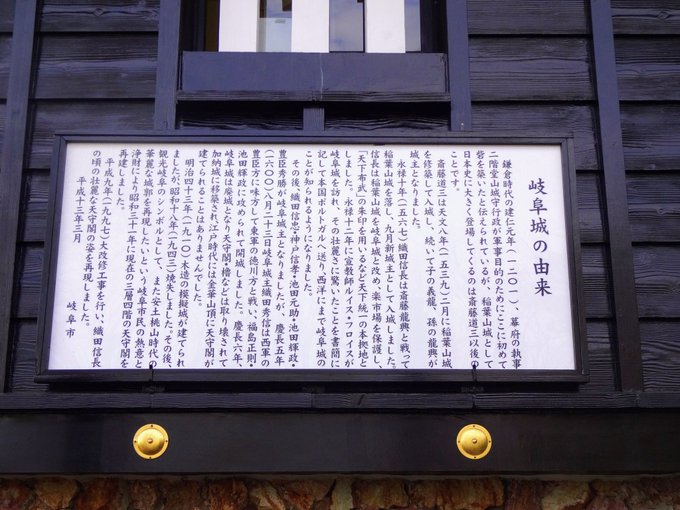 岐阜城の由来
鎌倉時代の建仁元年(一二〇一)、幕府の執事
二階堂山城守行政が軍事目的のためにここに初めて
砦を築いたと伝えられているが、稲葉山城として
日本史に大きく登場してくるのは斎藤道三以後の
ことです。
斎藤道三は天文八年(一五三九)二月に稲葉山城
を修築して入城し、続いて子の義龍、孫の龍興が
城主となりました。
永禄十年(一五六七)織田信長は斎藤龍興と戦って
稲葉山城を落し、九月新城主として入城しました。
信長は稲葉山城を岐阜城と改め、楽市場を保護し、
「天下布武」の朱印を用いるなど天下統一の本拠地と
しました。永禄十二年に宣教師ルイス・フロイスが
岐阜城を訪れ、その壮麗さに驚いたことを書簡に
記して本国ポルトガルへ送り、西洋にまで岐阜城の
ことが知られるようになりました。
その後、織田信忠・神戸信孝・池田元助・池田輝政・
豊臣秀勝が岐阜城主となりましたが、慶長五年
(一六〇〇)八月二十三日岐阜城主織田秀信は西軍の
豊臣方に味方して東軍の徳川方と戦い、福島正則・
池田輝政に攻められて開城しました。慶長六年、
岐阜城は廃城となり天守閣・櫓などは取り壊されて
加納城に移築され、江戸時代には金華山頂に天守閣が
建てられることはありませんでした。
明治四十三年(一九一〇)木造の模擬城が建てられ
ましたが、昭和十八年(一九四三)焼失しました。その後、
観光岐阜のシンボルとして、また安土桃山時代の
華麗な城郭を再現したいという岐阜市民の熱意と
浄財により昭和三十一年に現在の三層四階の天守閣を
再建しました。
平成九年(一九九七)大改修工事を行い、織田信長
の頃の壮麗な天守閣の姿を再現しました。
平成十三年三月
岐阜市